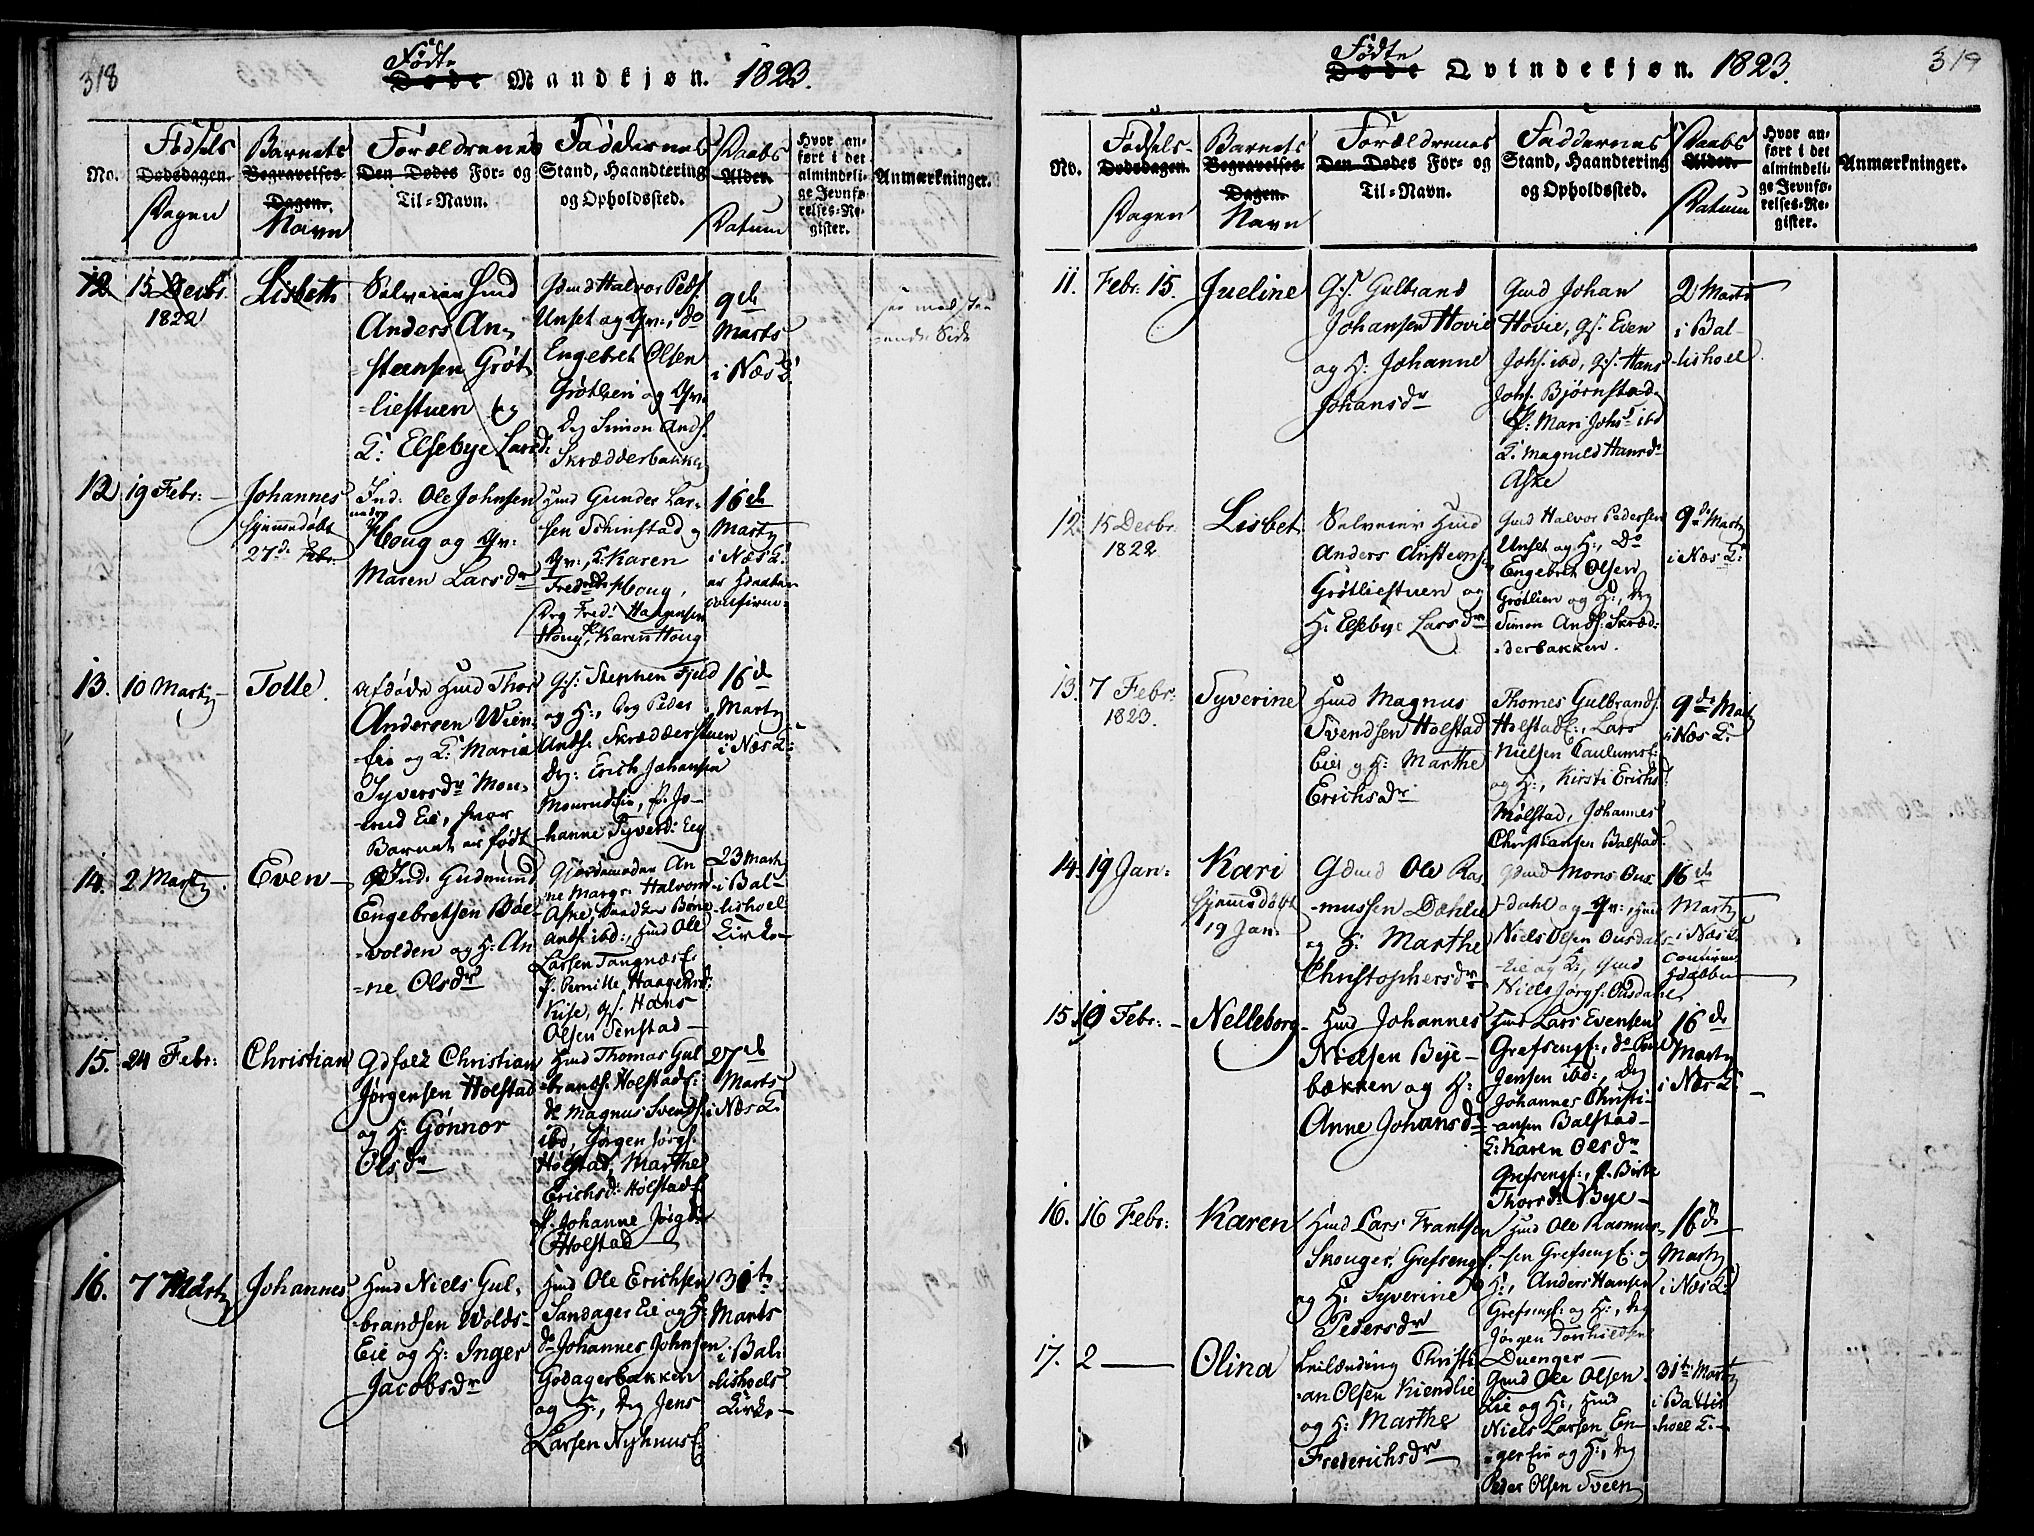 318
Fødte
Døde Mandkjøn. 1823.
No.
Fødsels
Dødsdagen.
Dagen
Barnets
Begravelses-
Dagen.
Navn
Forældrenes
Den Dødes For- og
Til-Navn.
Faddernes
Stand, Haandtering
og Opholdssted.
Daabs
Alder.
Datum
Hvor an-
ført i det
almindeli-
ge Jevnfø-
relses-Re-
gister.
Anmærkninger.
12
15 Decbr.
1822
Lisbeth
Selveier Hmd
Anders An-
steensen Grøt-
liestuen og
H: Elsebye Larsd:
Gmd Halvor Peds.
Unset og Qv:, do
Engebret Olsen
Grøtlien og Qv:
Deg Simon Ands.
Skrædderbakken
9de
Marts
i Næs K:
12
19 Febr:
Johannes
hjemmedøbt
27de Febr:
Ind: Ole Johnsen
Houg og Qv:
Maren Larsdr
Hmd Gunder Lar-
sen Schinstad og
Qv:, K. Karen
Houg,
Houg, Karen Houg
16de
Marty
i Næs K:
13.
10 Marty
Tolle.
Afdøde Hmd Thor
Andersen Wien-
Eie og K: Maria
Syversdr Mon-
rud Eie, hvor
Barnet er født
Gs: Stephen Fjeld
og H:, Deg Peder
Ands. Skrædderstuen
Deg: Erich Johansen
Monrudeie, P: Jo-
hanne Syversd: Eie
16de
Marty
i Næs K:
14.
2 Marty.
Even
Ind: Gudmund
Engebretsen Bøe-
volden og H: An-
ne Olsdr
Gjordemoder An-
ne Margr: Halvorsd
Aske,
Ands. ibd:, Hmd Ole
Larsen Tangnæs E:
P. Pernille Haagensd:
Kise, Gs. Hans
Olsen Tenstad
23 Marty
i Bal-
lishoel
Kirke
15.
24 Febr:
Christian
Gdfolk Christian
Jørgensen Holstad
og H: Gønnor
Olsdr
Hmd Thomas Gul-
brands. Holstad E:
do Magnus Svends.
ibd, Jørgen Jørgs.
Holstad, Marthe
Erichsd: Holstad E
P. Johanne Jørgdr
Holstad
27de
Marts
i Næs K:
16.
7 Marty
Johannes
Hmd Niels Gul-
brandsen Wolds-
Eie og H: Inger
Jacobsdr
Hmd Ole Erichsen
Sandager Eie og H:
do Johannes Johnsen
Godagerbakken
og H:, Deg Jens
Larsen Nyhuus E:
31te
Marts
i Bal-
lishoels
Kirke
319
Fødte
Døde Qvindekjøn. 1823.
No.
Fødsels-
Dødsdagen.
Dagen
Barnets
Begravelses-
Dagen.
Navn
Forældrenes
Den Dødes For- og
Til-Navn.
Faddernes
Stand, Haandtering
og Opholdssted.
Daabs
Alder.
Datum
Hvor an-
ført i det
almindeli-
ge Jevnfø-
relses-Re-
gister.
Anmærkninger.
11.
Febr: 15.
Jueline
Gs. Gulbrand
Johansen Hovie
og H: Johanne
Johansdr
Gmd Johan
Hovie, Gs. Even
Johs. ibd, Gs. Hans
Johs. Bjørnstad
P: Mari Johsd ibd
K. Magnild Hansdr
Aske
2 Marts
i Bal-
lishoel
12.
15 Decbr:
1822
Lisbet
Selveier Hmd
Anders Ansteens.
Grøtliestuen og
H: Elsebye Larsdr
Gmd Halvor Pedersen
Unset og H:, Do
Engebret Olsen
Grøtlien og H:, Deg
Simon Ands. Skræd-
derbakken.
9de Marty
i Næs K:
13.
7 Febr:
1823.
Syverine
Hmd Magnus
Svendsen Holstad
Eie og H: Marthe
Erichsdr
Thomes Gulbrands.
Holstad E:, Lars
Nielsen Caulums E:
og H:, Kirsti Erichsd
Mølstad, Johannes
Christiansen Balstad
9de Marty
i Næs K:
14.
19 Jan:
Kari
hjemmedøbt
19 Jan.
Gdmd Ole Ras-
mussen Dæhlie
og H: Marthe
Christophersdr
Gmd Mons Ous-
dahl og Qv:, Hmd
Niels Olsen Ousdals-
Eie og K:, Gmd
Niels Jørgs. Ousdahl
16de
Marty
i Næs K:
15.
10 Febr:
Nelleborg
Hmd Johannes
Nielsen Bye-
bækken og H:
Anne Johansdr
Hmd Lars Evensen
Grefseng E:, do
Jensen ibd:, Deg
Johannes Christi-
ansen Balstad
K: Karen Olsdr
Grefseng E:, P. Birte
Thorsdr Bye
16de
Marty
i Næs K:
16.
16 Febr:
Karen
Hmd Lars Frantsen
Skouger, Grefseng E.
og H: Syverine
Pedersdr
Hmd Ole Rasmus-
sen Grefseng E: og
H:, Anders Hansen
Grefseng E: og H:, Deg
Jørgen Torchildsen
Duenger
16de
Marty
i Næs K:
17.
2
Olina
Leilænding Christi-
an Olsen Kiendlie
og H: Marthe
Frederichsdr
Gmd Ole Olsen
Lie og H:, Hmd
Niels Larsen En-
ger Eie og H:, Deg
Peder Olsen Sveen
31te Marty
i Ballis-
hoel K: